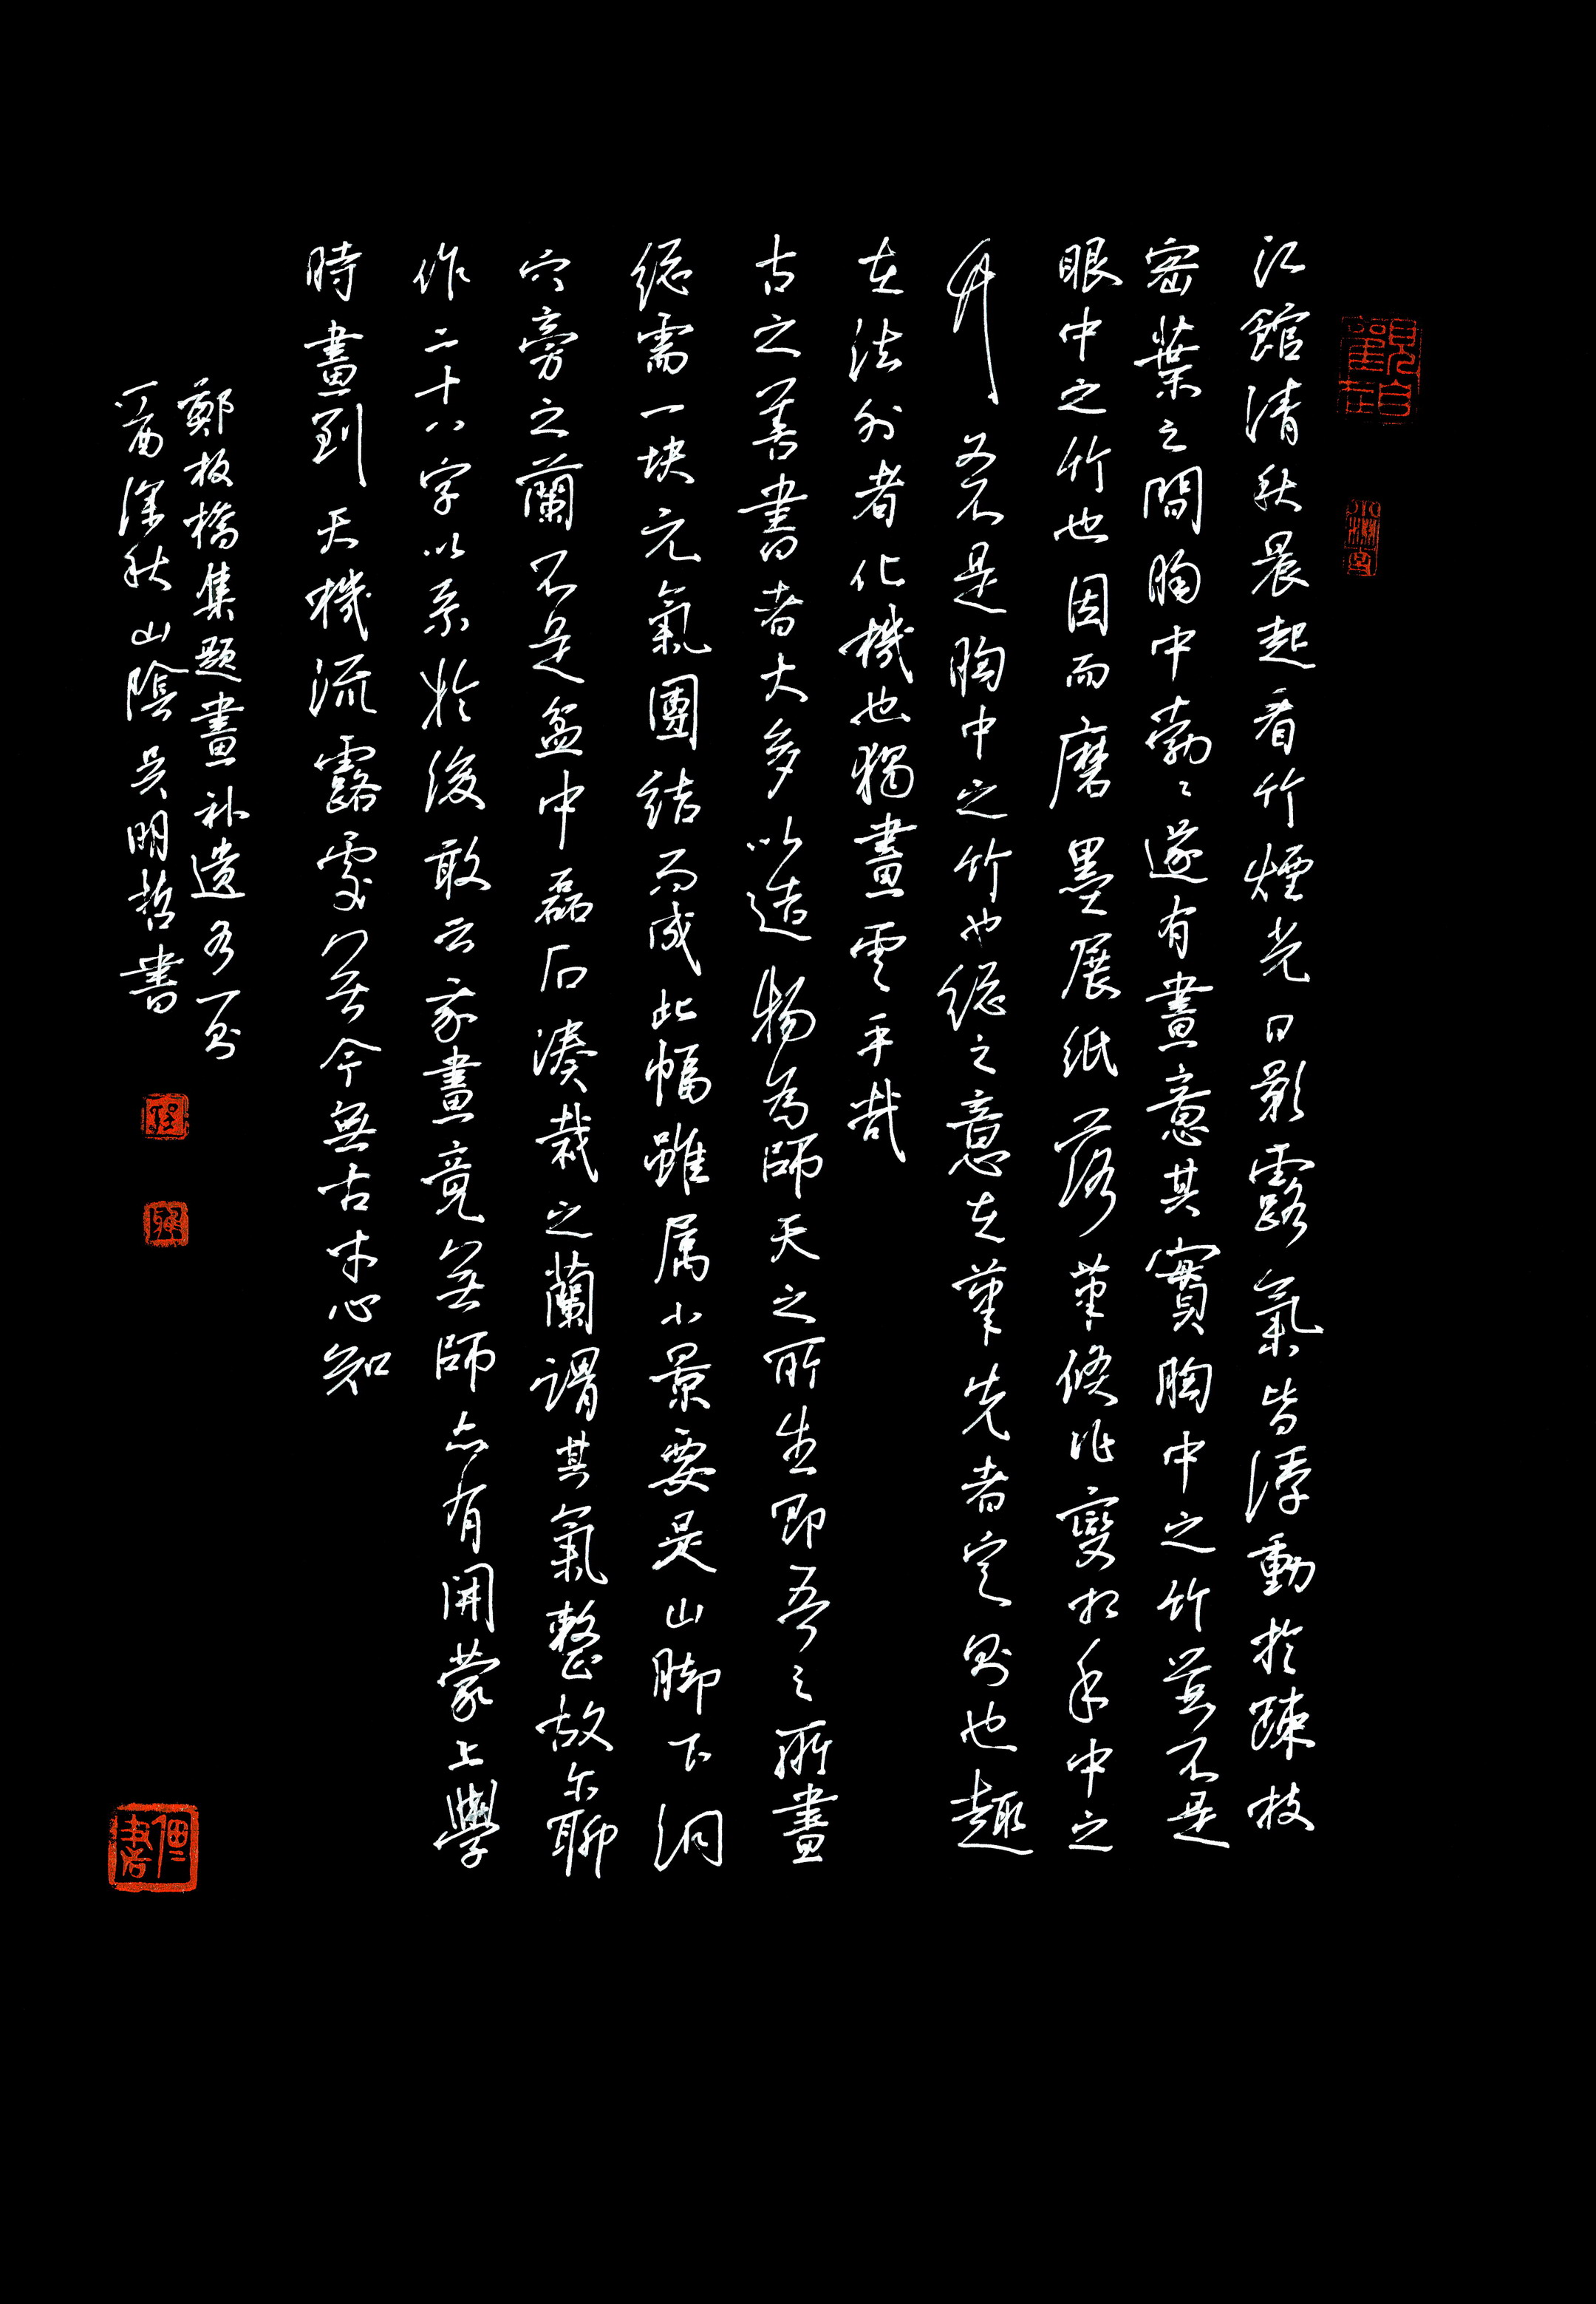 江館清秋晨起看竹煙光日影露氣皆浮動於疎枝
密葉之間胸中勃々遂有畫意其實胸中之竹並不是
眼中之竹也因而磨墨展紙落筆倏作變相手中之
竹又不是胸中之竹也總之意在筆先者定則也趣
在法外者化機也獨畫云乎哉
古之善書者大多以造物為師天之所生即吾之所畫
總需一块元氣團結而成此幅雖属小景要是山脚下洞
穴旁之蘭不是盆中磊石湊栽之蘭謂其氣整故尔聊
作二十八字以系於後敢云我畫竟無師亦有開蒙上學
時畫到天機流露處無今無古寸心知
鄭板橋集題畫補遺各一則
深秋山陰吴明哲書
觀自在